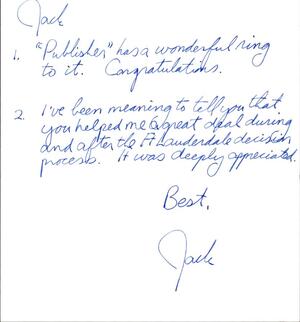 Jack
1. "Publisher" has a wonderful ring
to it. Congratulations.
2. I've been meaning to tell you that
you helped me a great deal during
and after the Ft Lauderdale decision
process. It was deeply appreciated.
Best,
Jack